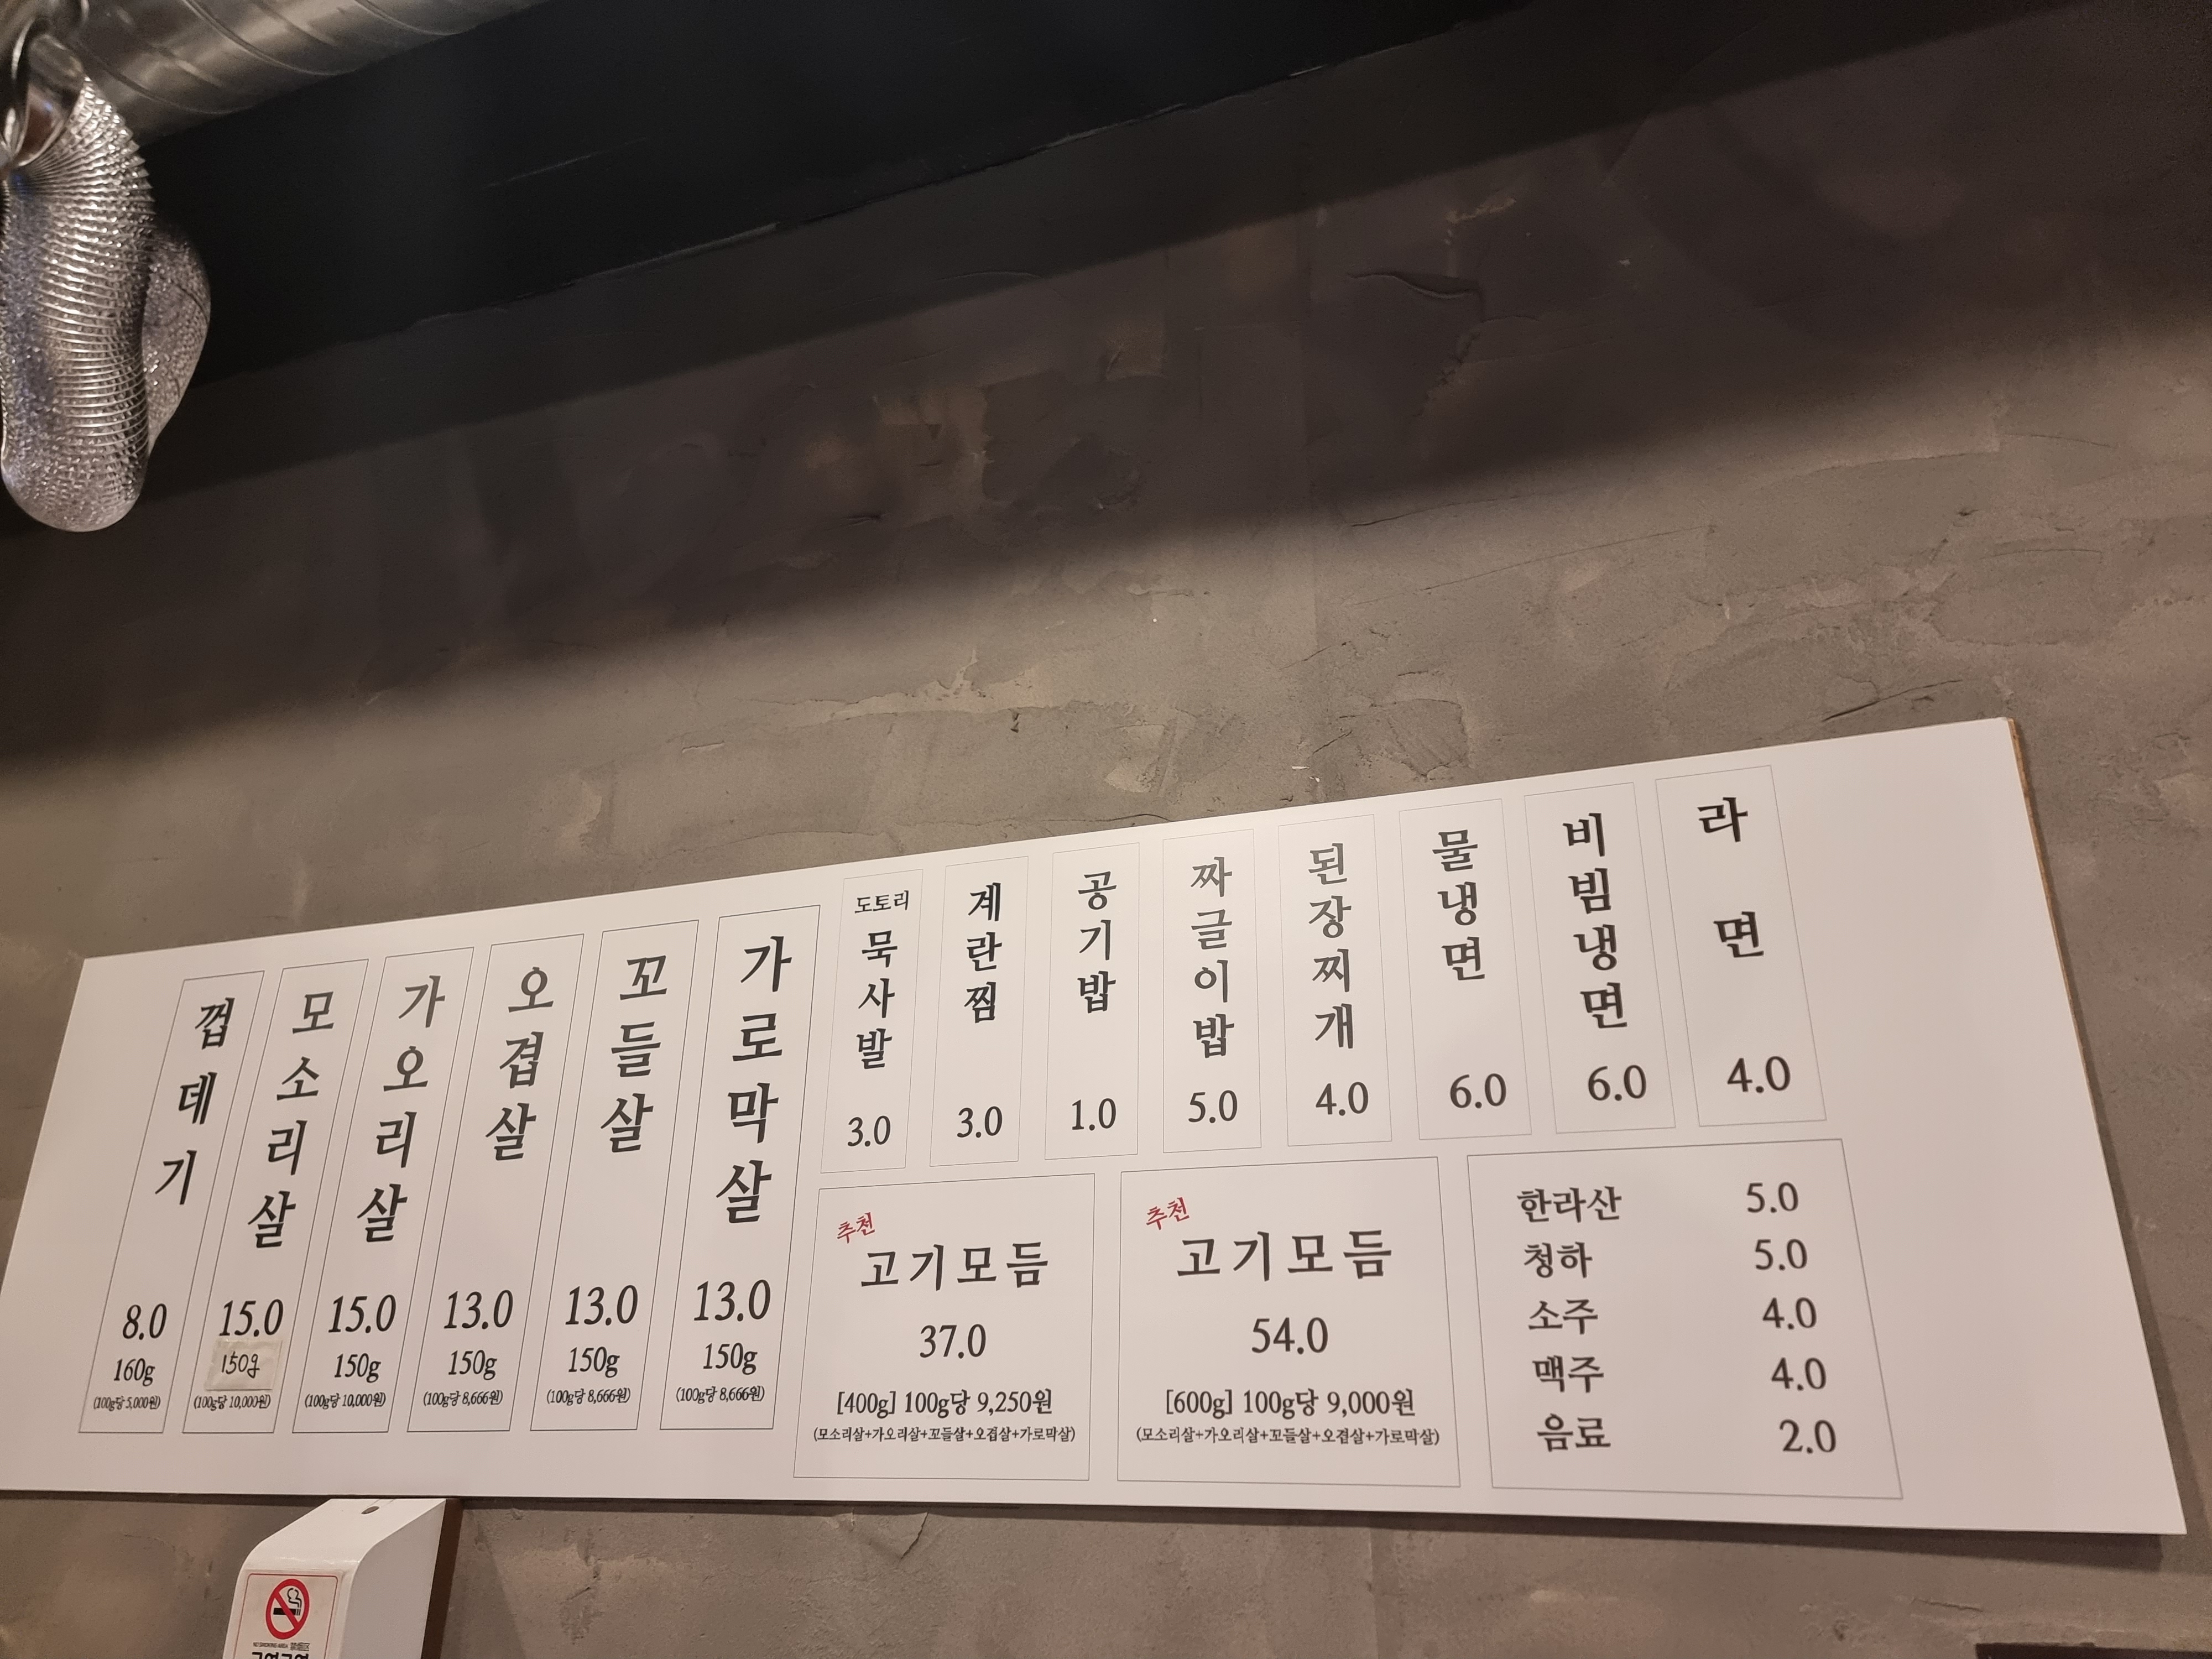 껍데기
8.0
160g
(100g당 5,000원)
모소리살
15.0
150g
(100g당 10,000원)
가오리살
15.0
150g
(100g당 10,000원)
오겹살
13.0
150g
(100g당 8,666원)
꼬들살
13.0
150g
(100g당 8,666원)
가로막살
13.0
150g
(100g당 8,666원)
도토리
묵사발
3.0
계란찜
3.0
공기밥
1.0
짜글이밥
5.0
된장찌개
4.0
물냉면
6.0
비빔냉면
6.0
라면
4.0
추천
고기모듬
37.0
[400g] 100g당 9,250원
(모소리살+가오리살+꼬들살+오겹살+가로막살)
추천
고기모듬
54.0
[600g] 100g당 9,000원
(모소리살+가오리살+꼬들살+오겹살+가로막살)
한라산 5.0
청하 5.0
소주 4.0
맥주 4.0
음료 2.0
NO SMOKING AREA 禁烟区